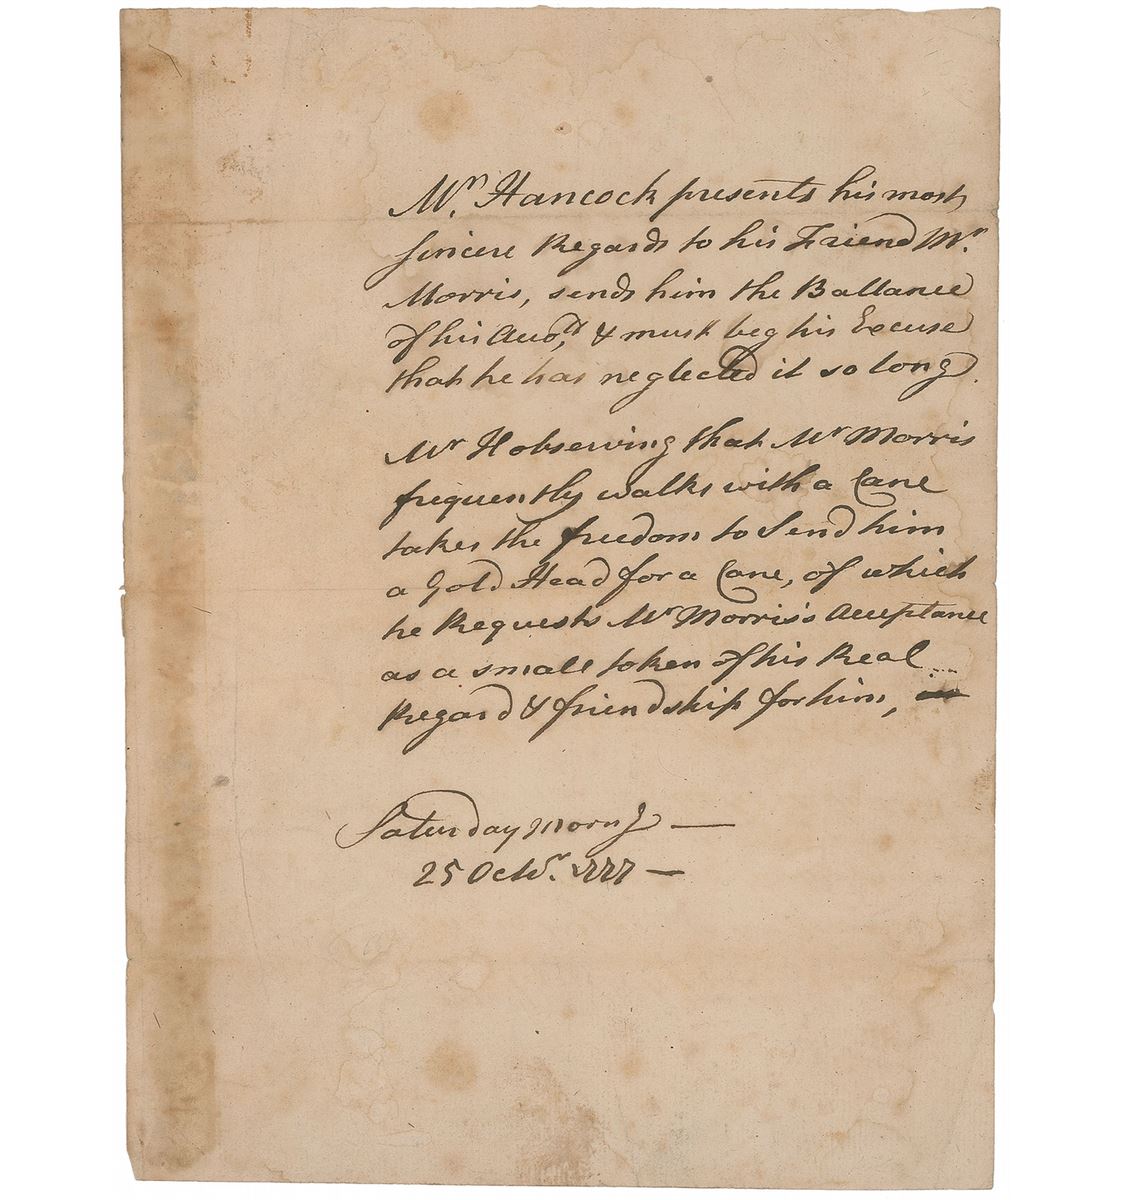 Mr. Hancock presents his most
sincere Regards to his Friend Mr.
Morris, sends him the Ballance
of his Accott, & must beg his Excuse
that he has neglected it so long.
Mr H observing that Mr Morris
frequently walks with a Cane
takes the freedom to Send him
a Gold Head for a Cane, of which
he Requests Mr Morris's Acceptance
as a small token of his Real
Regard & friendship for him,
Saturday Morng —
25 Octor. 1777 —